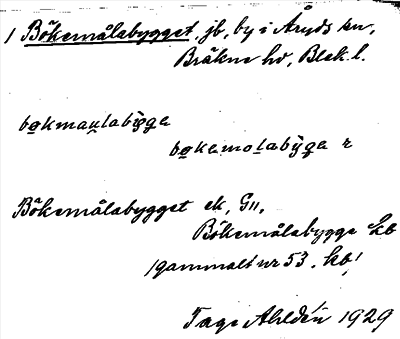 1 Bökemålabygget, jb, by i Åryds sn,
Bräkne hd, Blek. l.
bokmaulabyga
bokemolabyga r
Bökemålabygget ek, G11,
Bökemålabygge kb
1 gammalt nr 53. kb,
Tage Ahldén 1929